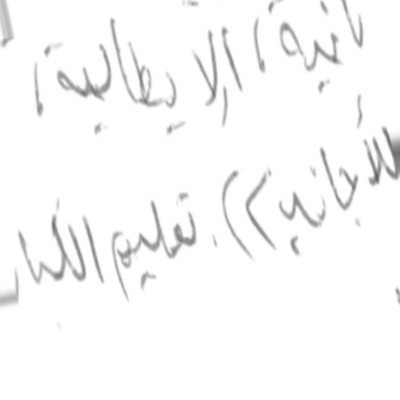 انية، الإيطالية،
للأجانب). تعليم الكبار